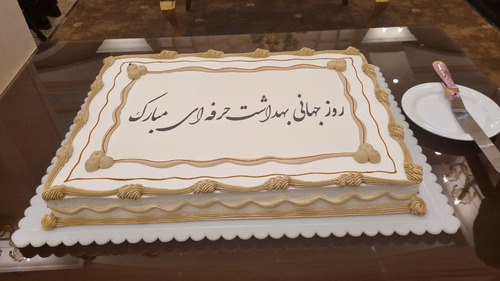 روز جهانی بهداشت حرفه ای مبارک